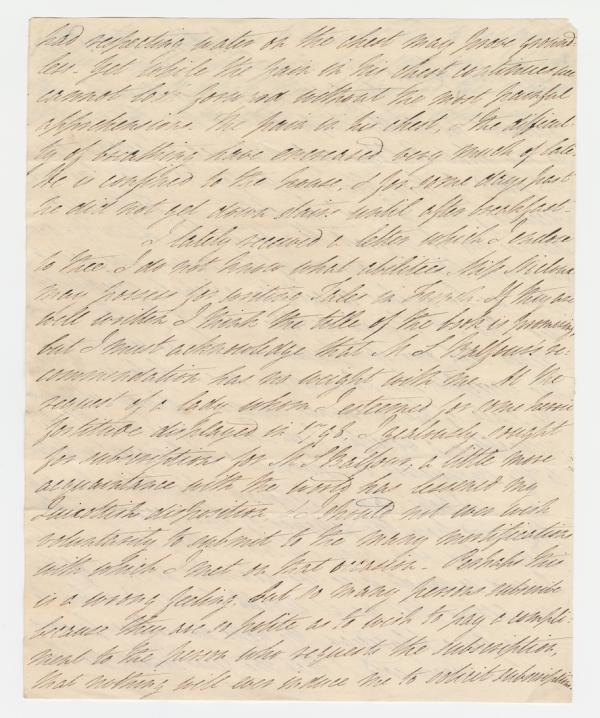 had respecting water on the chest may prove ground-
less. Yet while the pain in his chest continues we
cannot look forward without the most painful
apprehensions. The pain in his chest, & the difficul-
ty of breathing have increased very much of late.
He is confined to the house, & for some days past
he did not get down stairs until after breakfast.
I lately received a letter which I enclose
to thee. I do not know what abilities Miss
may possess for writing Tales in French. If they are
well written I think the title of the book is promising,
but I must acknowledge that M. S Balfour's re-
commendation has no weight with me. At the
request of a lady whom I esteemed for some heroic
fortitude displayed in 1798, I zealously sought
for subscriptions for M. S Balfour, a little more
acquaintance with the world has lessened my
Quixotish disposition & I should not ever wish
voluntarily to submit to the many mortifications
with which I met on that occasion - Perhaps this
is a wrong feeling. But so many persons subscribe
because they are so polite as to wish to pay a compli-
ment to the person who requests the subscription,
that nothing will ever induce me to solicit subscriptions